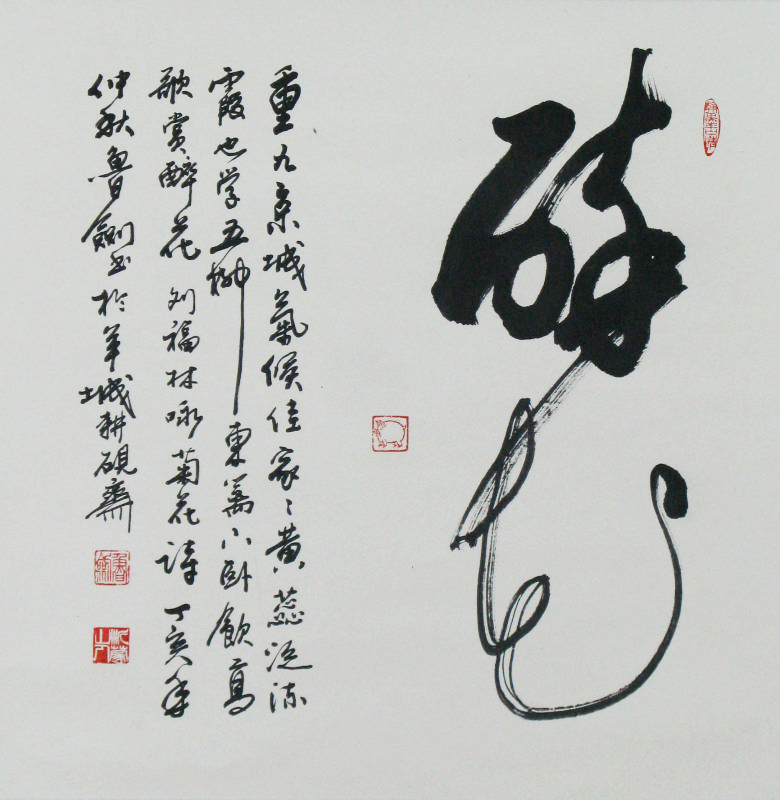 醉花
重九京城氣候佳家〻黄蕊泛流
霞也学五柳東篱下卧飲高
歌赏醉花刘福林咏菊花诗丁亥年
仲秋魯劍书於羊城耕硯齋